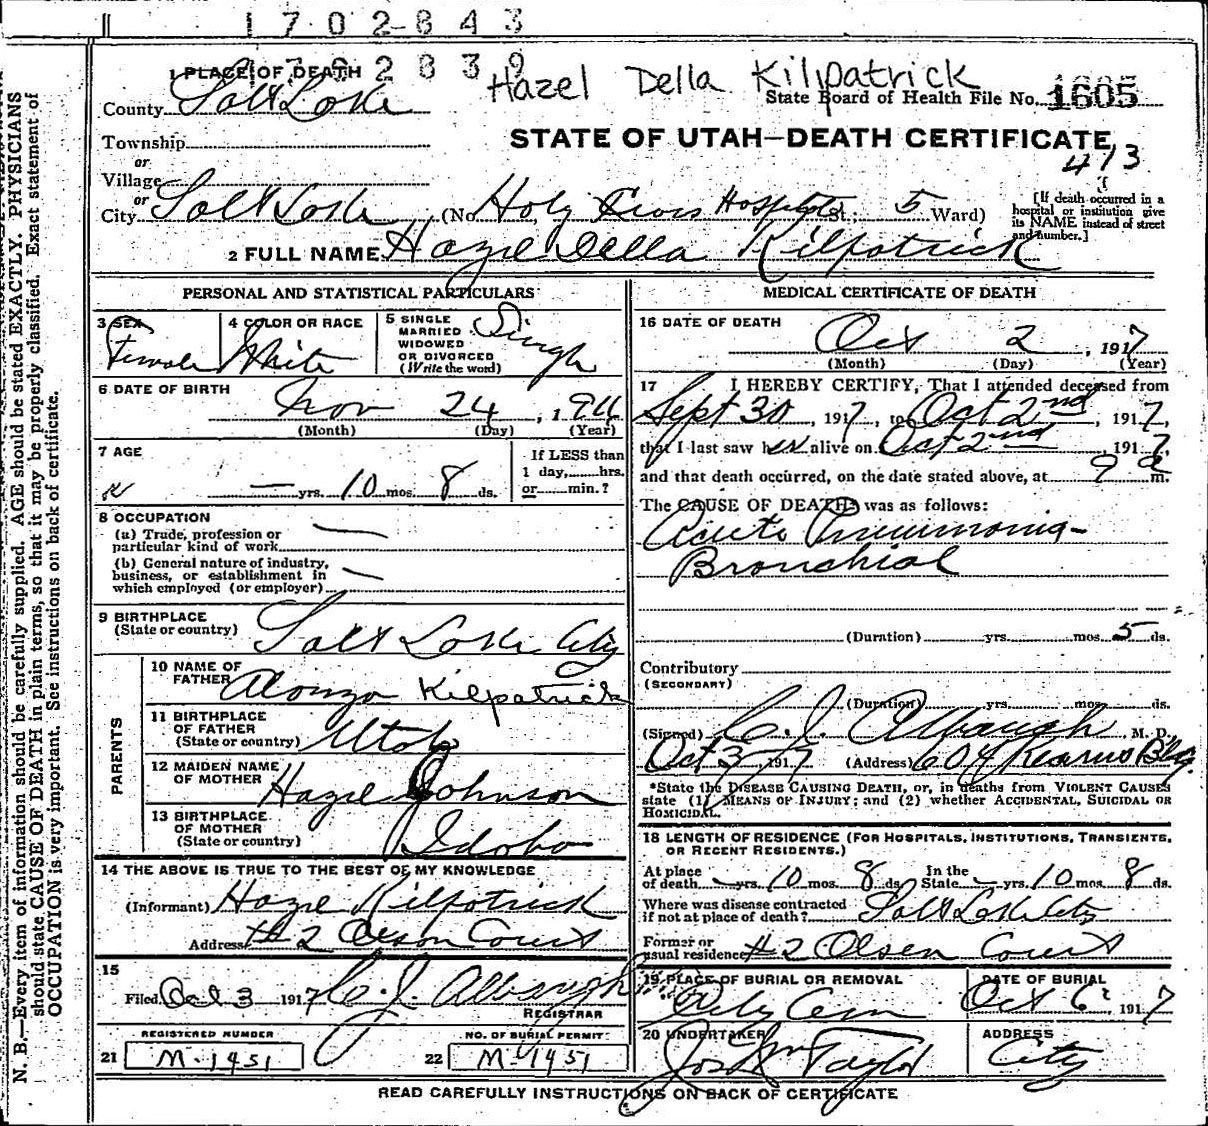 1702843
1792839
1 PLACE OF DEATH
Hazel Della Kilpatrick
County Salt Lake
State Board of Health File No. 1605
Township
STATE OF UTAH—DEATH CERTIFICATE
or
413
Village
or
City Salt Lake (No. Holy Cross Hospital St.; 5 Ward)
[If death occurred in a
hospital or institution give
its NAME instead of street
and number.]
2 FULL NAME Hazel Della Kilpatrick
PERSONAL AND STATISTICAL PARTICULARS
3 SEX
Female
4 COLOR OR RACE
White
5 SINGLE
MARRIED
WIDOWED
OR DIVORCED
(Write the word)
Single
6 DATE OF BIRTH
Nov 24, 1916
(Month) (Day) (Year)
7 AGE
— yrs. 10 mos. 8 ds.
If LESS than
1 day,......hrs.
or......min.?
8 OCCUPATION
(a) Trade, profession or
particular kind of work —
(b) General nature of industry,
business, or establishment in
which employed (or employer) —
9 BIRTHPLACE
(State or country) Salt Lake City
PARENTS
10 NAME OF
FATHER Alonzo Kilpatrick
11 BIRTHPLACE
OF FATHER
(State or country) Utah
12 MAIDEN NAME
OF MOTHER Hazel Johnson
13 BIRTHPLACE
OF MOTHER
(State or country) Idaho
14 THE ABOVE IS TRUE TO THE BEST OF MY KNOWLEDGE
(Informant) Hazel Kilpatrick
Address #2 Olson Court
15
Filed Oct 3 1917 C. J. Albaugh
REGISTRAR
REGISTERED NUMBER
21 M-1451
NO. OF BURIAL PERMIT
22 M-1451
MEDICAL CERTIFICATE OF DEATH
16 DATE OF DEATH
Oct 2, 1917
(Month) (Day) (Year)
17 I HEREBY CERTIFY, That I attended deceased from
Sept 30, 1917, to Oct 2nd, 1917,
that I last saw her alive on Oct 2nd, 1917,
and that death occurred, on the date stated above, at 9 a m.
The CAUSE OF DEATH* was as follows:
Acute Pneumonia-
Bronchial
(Duration) yrs. mos. 5 ds.
Contributory
(SECONDARY)
(Duration) yrs. mos. ds.
(Signed) C. J. Albaugh M. D.
Oct 3, 1917 (Address) 604 Kearns Bldg.
*State the DISEASE CAUSING DEATH, or, in deaths from VIOLENT CAUSES
state (1) MEANS OF INJURY; and (2) whether ACCIDENTAL, SUICIDAL OR
HOMICIDAL.
18 LENGTH OF RESIDENCE (FOR HOSPITALS, INSTITUTIONS, TRANSIENTS,
OR RECENT RESIDENTS.)
At place
of death — yrs. 10 mos. 8 ds.
In the
State — yrs. 10 mos. 8 ds.
Where was disease contracted
if not at place of death? Salt Lake City
Former or
usual residence #2 Olsen Court
19 PLACE OF BURIAL OR REMOVAL
City Cem
DATE OF BURIAL
Oct 6, 1917
20 UNDERTAKER
Jos Wm Taylor
ADDRESS
City
READ CAREFULLY INSTRUCTIONS ON BACK OF CERTIFICATE
N. B.—Every item of information should be carefully supplied. AGE should be stated EXACTLY. PHYSICIANS
should state CAUSE OF DEATH in plain terms, so that it may be properly classified. Exact statement of
OCCUPATION is very important. See instructions on back of certificate.